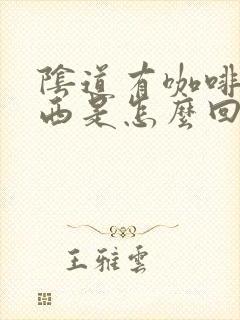 陰道有咖啡
西是怎麼回
王雅雲